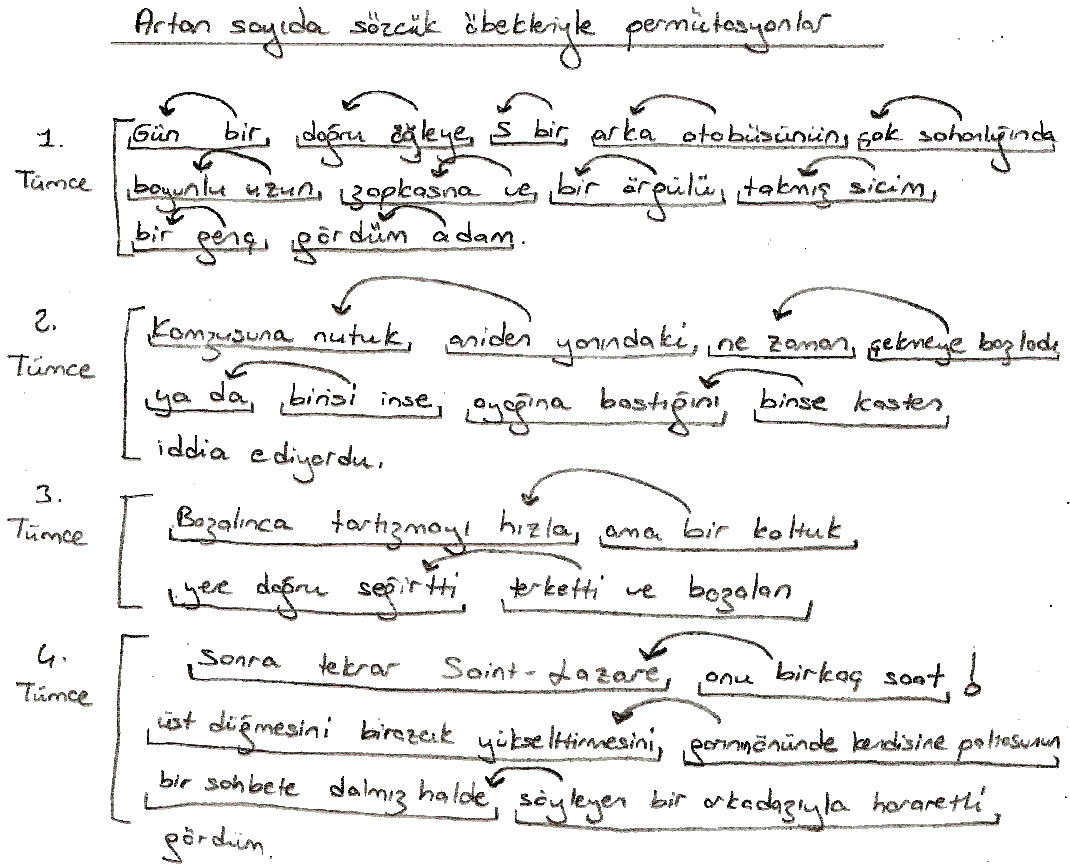 Artan sayıda sözcük öbekleriyle permütasyonlar
1. Tümce
Gün bir, doğru öğleye, S bir, arka otobüsünün, çok sahanlığında
boyunlu uzun, şapkasına ve, bir örgülü, takmış sicim,
bir genç, gördüm adam.
2. Tümce
Komşusuna nutuk, aniden yanındaki, ne zaman, çekmeye başladı
ya da, birisi inse, ayağına bastığını, binse kasten
iddia ediyordu.
3. Tümce
Boşalınca tartışmayı hızla, ama bir koltuk
yere doğru seğirtti terketti ve boşalan
4. Tümce
Sonra tekrar Saint-Lazare, onu birkaç saat !
üst düğmesini birazcık yükselttirmesini, garının önünde kendisine paltosunun
bir sohbete dalmış halde, söyleyen bir arkadaşıyla hararetli
gördüm.